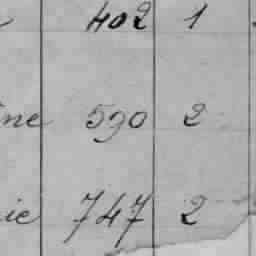 402 1
ne 590 2
ie 747 2